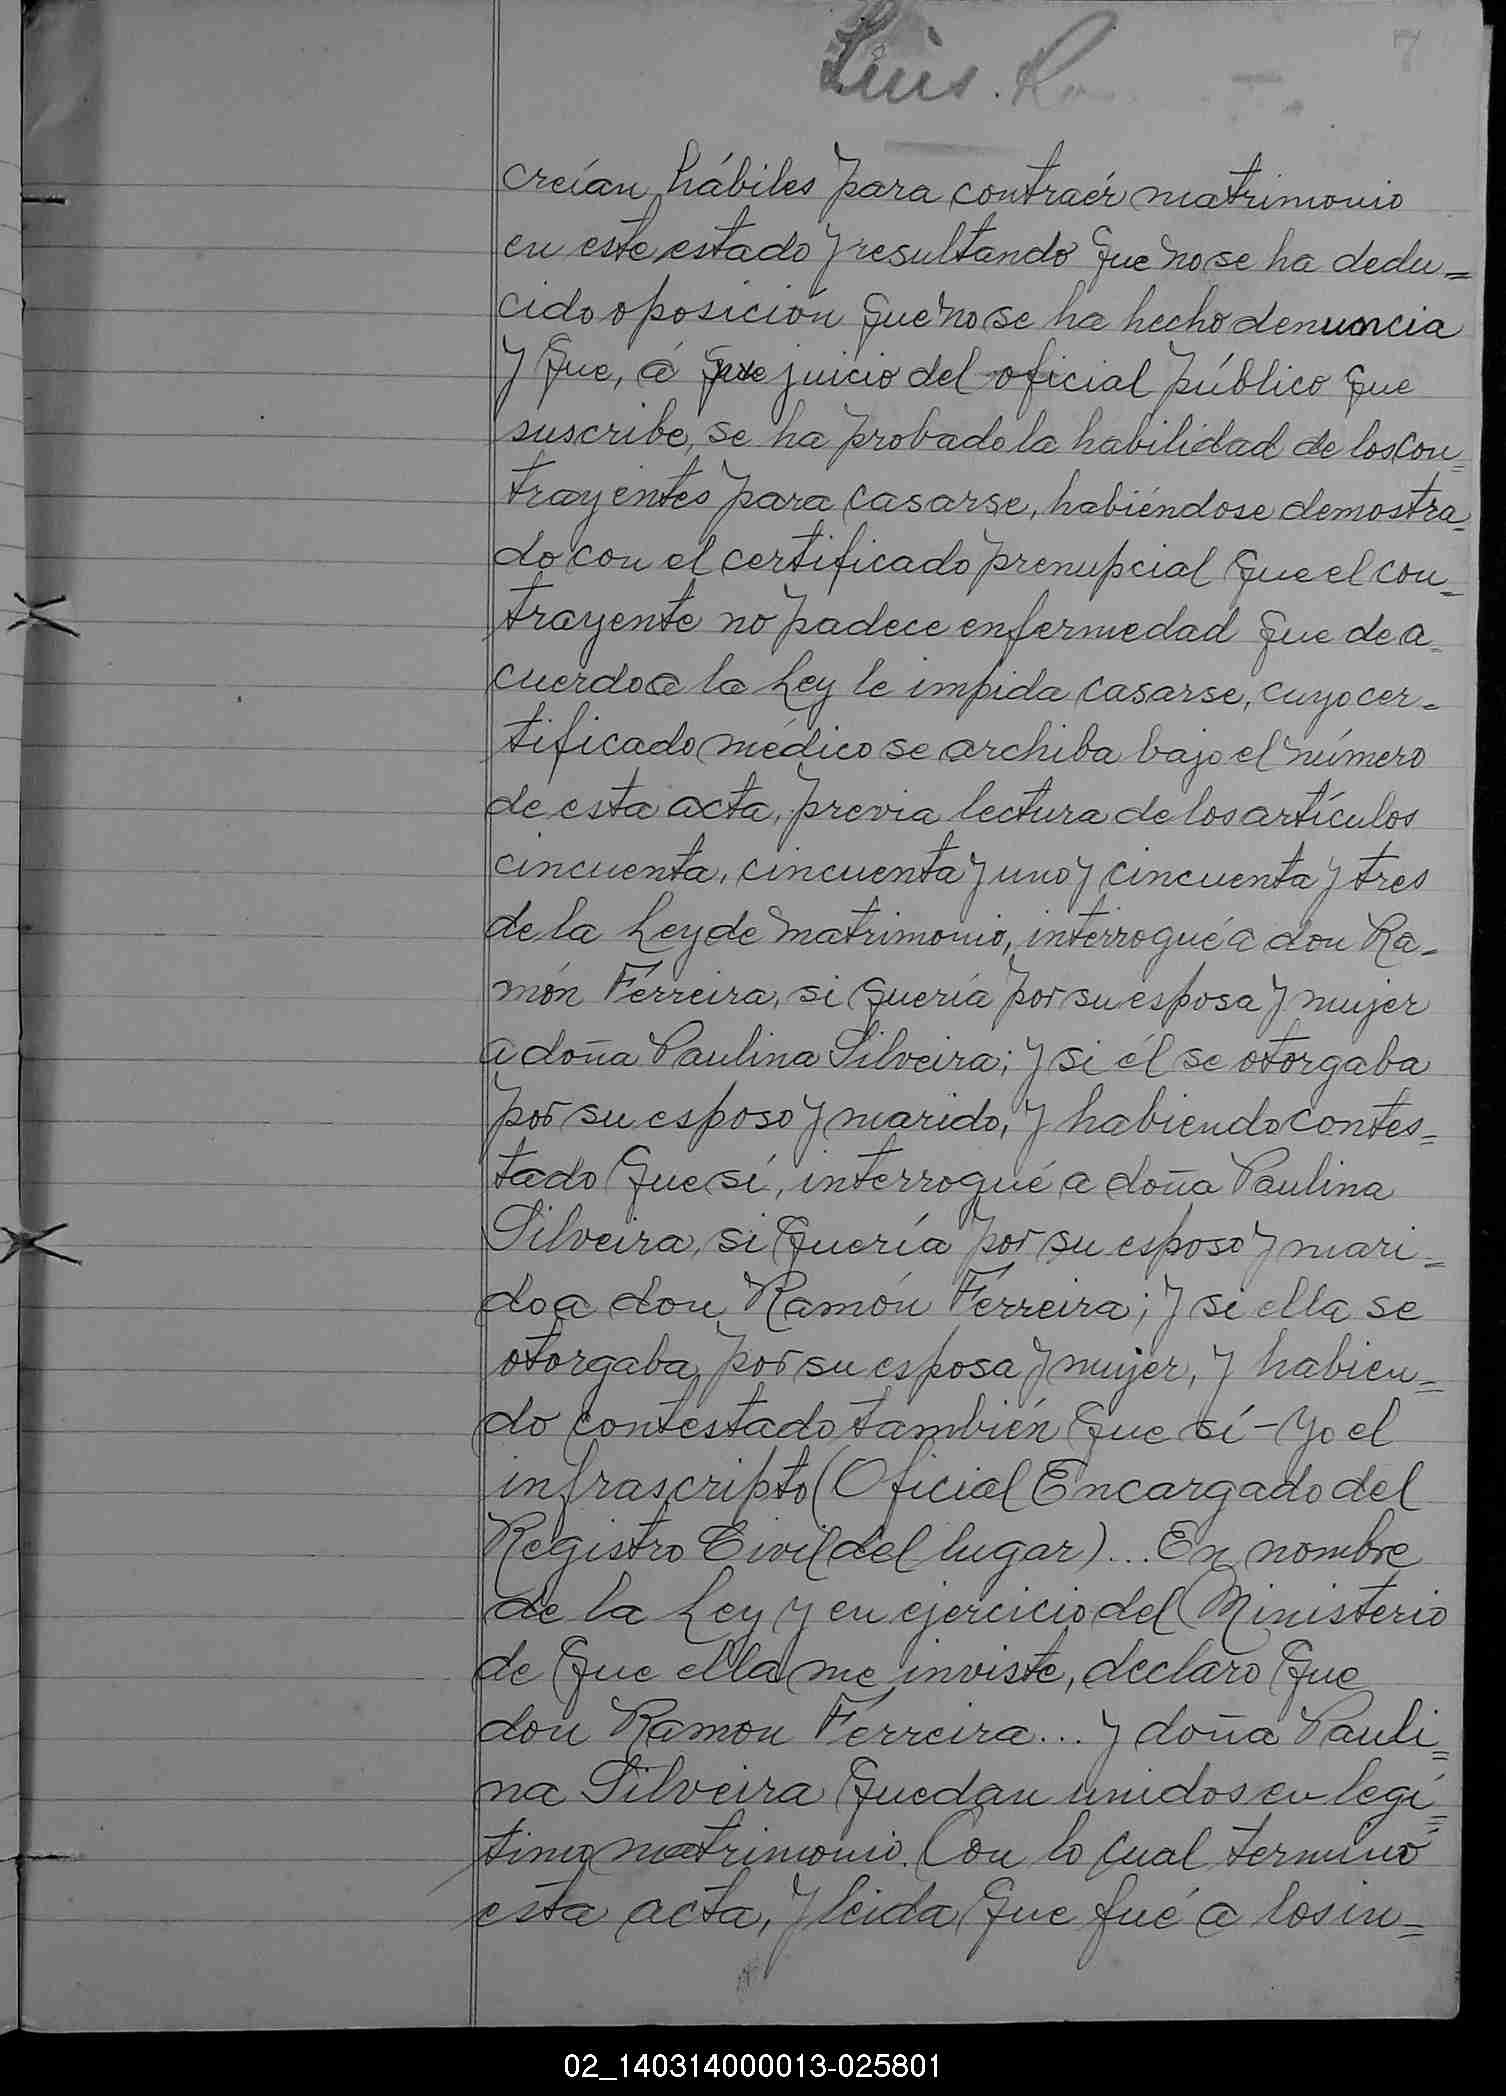 7
Luis.
creían hábiles para contraér matrimonio
en este estado y resultando que no se ha dedu=
cido oposición que no se ha hecho denuncia
y que, á que juicio del oficial público que
suscribe, se ha probado la habilidad de los con=
trayentes para casarse, habiéndose demostra=
do con el certificado prenupcial que el con=
trayente no padece enfermedad que de a=
cuerdo a la Ley le impida casarse, cuyo cer=
tificado médico se archiba bajo el número
de esta acta, previa lectura de los artículos
cincuenta, cincuenta y uno y cincuenta y tres
de la Ley de matrimonio, interrogué a don Ra=
món Férreira, si quería por su esposa y mujer
a doña Paulina Silveira; y si él se otorgaba
por su esposo y marido, y habiendo contes=
tado que sí, interrogué a doña Paulina
Silveira, si quería por su esposo y mari=
do a don Ramón Férreira; y si ella se
otorgaba por su esposa y mujer, y habien=
do contestado también que sí - Yo el
infrascripto (Oficial Encargado del
Registro Civil del lugar)... En nombre
de la Ley y en ejercicio del Ministerio
de que ella me inviste, declaro que
don Ramon Férreira... y doña Pauli=
na Silveira quedan unidos en legí=
timo matrimonio. Con lo cual terminó
esta acta, y leida que fué a los in=
02_140314000013-025801